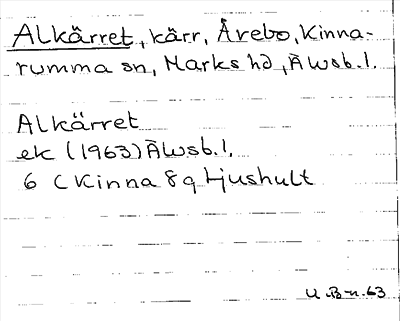 Alkärret, kärr, Årebo, Kinna-
rumma sn, Marks hd, Äwsb.l.
Alkärret
ek (1963) Äwsb.l.
6 C Kinna 8 q Ljushult
U.B-n.63